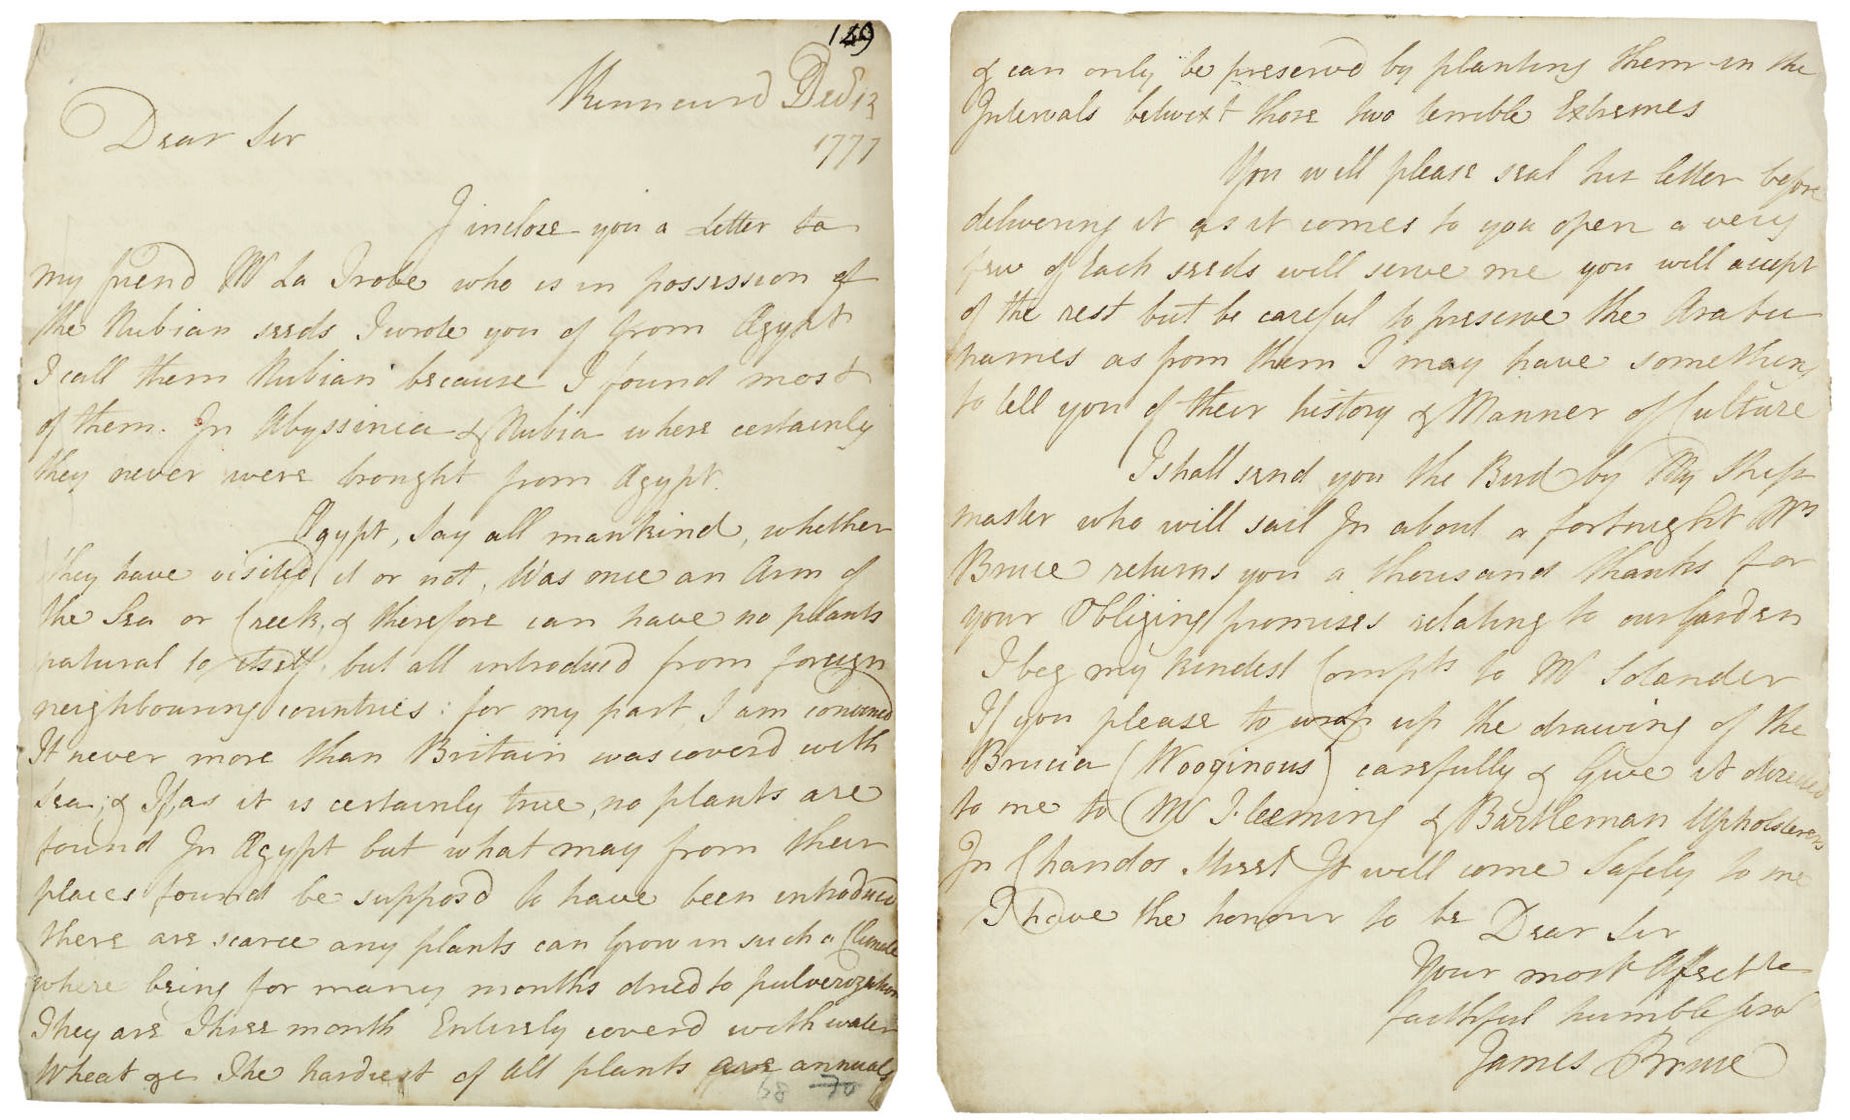 149
Kinnaird Decr 13
1777
Dear Sir
I inclose you a Letter to
my friend Mr La Trobe who is in possession of
the Nubian seeds I wrote you of from Ægypt
I call them Nubian because I found most
of them. In Abyssinia & Nubia where certainly
they never were brought from Ægypt.
Ægypt, say all mankind, whether
they have visited it or not, Was once an Arm of
the Sea or Creek, & therefore can have no plants
natural to itself, but all introduced from foreign
neighbouring countries: for my part I am convinced
It never more than Britain was coverd with
sea; & If, as it is certainly true, no plants are
found In Ægypt but what may from their
places found be supposd to have been introduced
there are scarce any plants can Grow in such a Climate
where being for many months dried to pulverization
They are Three month Entirely coverd with water
Wheat &c The hardiest of all plants are annuals
68 70
& can only be preservd by planting them in the
Intervals betwixt those two terrible Extremes
You will please seal his letter before
delivering it as it comes to you open a very
few of Each seeds will serve me you will accept
of the rest but be careful to preserve the Arabic
names as from them I may have something
to tell you of their history & Manner of Culture
I shall send you the Bird by My Ship
master who will sail In about a fortnight Mrs
Bruce returns you a thousand thanks for
your Obliging promises relating to our Garden
I beg my kindest Compts to Mr Solander
If you please to wrap up the drawing of the
Brucia (Wooginous) carefully & Give it directed
to me to Mr Fleeming & Bartleman Upholsterers
In Chandos Street It will come Safely to me
I have the honour to be Dear Sir
Your most Affectte
faithful humble servt
James Bruce